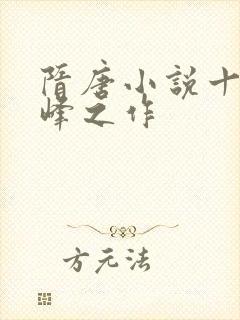 隋唐小説十
峰之作
方元法